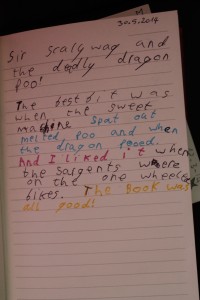 30.5.2014
Sir Scalywag and
the dedly dragon
Poo!
The best bit was
when the sweet
mashine Spat out
melted Poo and when
the dragon pooed.
And I liked it where
the Sargents where
on the one wheel
bikes. The Book was
all good!